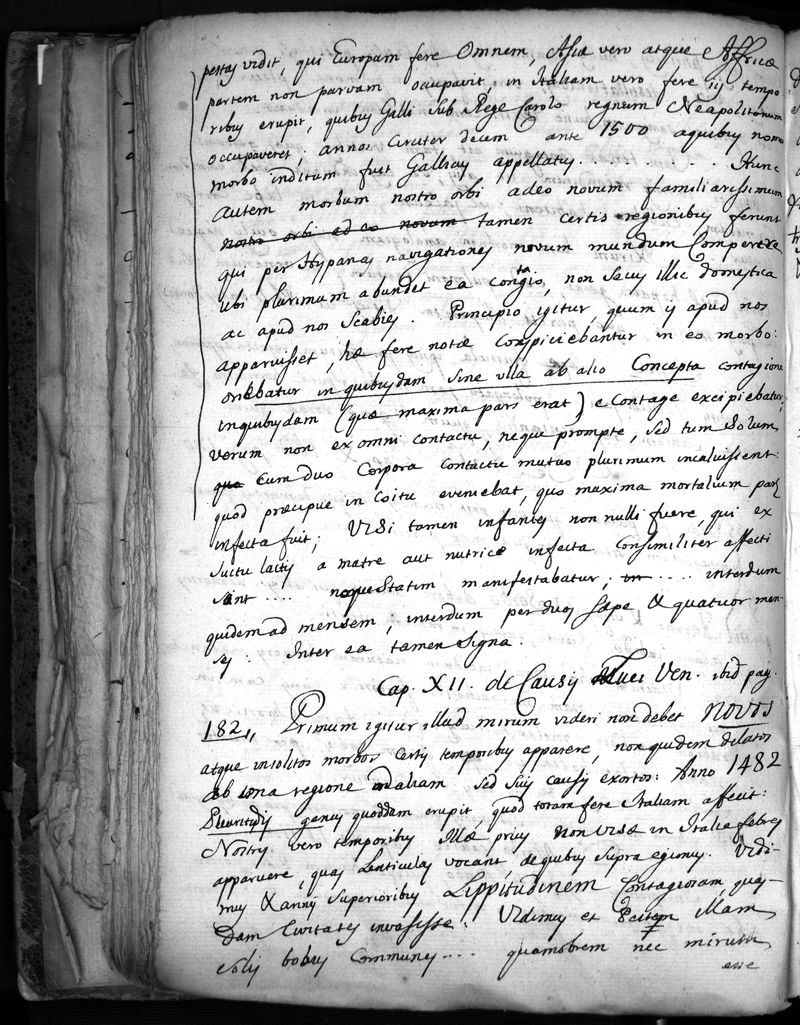 pestas vidit, qui Europam fere Omnem, Asiæ vero atque Affricæ
partem non parvam occupavit, in Italiam vero fere iis tempo
ribus erupit, quibus Galli sub Rege Carolo regnum Neapolitanum
occupaveret; annos Circiter decem ante 1500 aquibus nomen
morbo inditum fuit Gallicus appellatus. . . . . . . . . . . Hunc
Autem morbum nostro orbi adeo novum familiarissimum
nostro orbi ad eo novum tamen certis regionibus ferunt
qui per Hyspanas navigationes novum mundum Comperere
Ubi plurimum abundet ea contagio, non Secus illic domestica
ac apud nos Scabies. Principio igitur, quum is apud nos
apparuisset, hæ fere notæ Conspiciebantur in eo morbo:
oriebatur in quibusdam sine ulla ab alio Concepta contagione
inquibusdam (quæ maxima pars erat) e Contage excipiebatur,
verum non ex omni contactu, neque prompte, sed tum Solum,
que Cum duo Corpora Contactu mutuo plurimum incaluissent:
quod præcipue in Coitu eveniebat, quo maxima mortalium pars
infecta fuit; Visi tamen infantes non nulli fuere, qui ex
Suctu lactis a matre aut nutrice infecta Consimiliter affecti
sunt .... neque Statim manifestabatur; .... interdum
quidem ad mensem, interdum per duos sæpe & quatuor men
ses: Inter ea tamen Signa.
Cap. XII. de Causis Luei Ven. ibid pag.
182,, Primum igitur illud mirum videri non debet NOVOS
atque insolitos morbos Certis temporibus apparere, non quidem delatos
ab una regione in aliam sed suis causis exortos: Anno 1482
Pleuritidis genus quoddam erupit, quod totam fere Italiam affecit:
Nostris vero temporibus illæ prius non visæ in Italia febres
apparuere, quas Lenticulas vocant, de quibus Supra egimus. Vidi-
mus & annis Superioribus Lippitudinem Contagiosam, quas-
dam Civitates invasisse: Vidimus et Pestem illam
Solis bobus Communes .... quamobrem nec mirum
esse